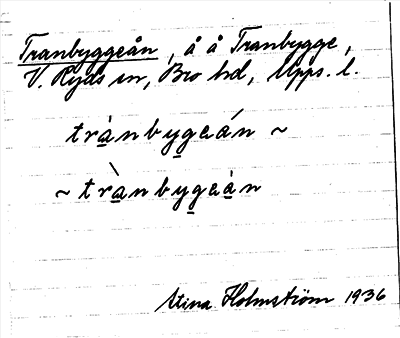 Tranbyggeån, å å Tranbygge,
V. Ryds sn, Bro hd, Upps. l.
trànbygeán ~
~ trànbygeàn
Stina Holmström 1936